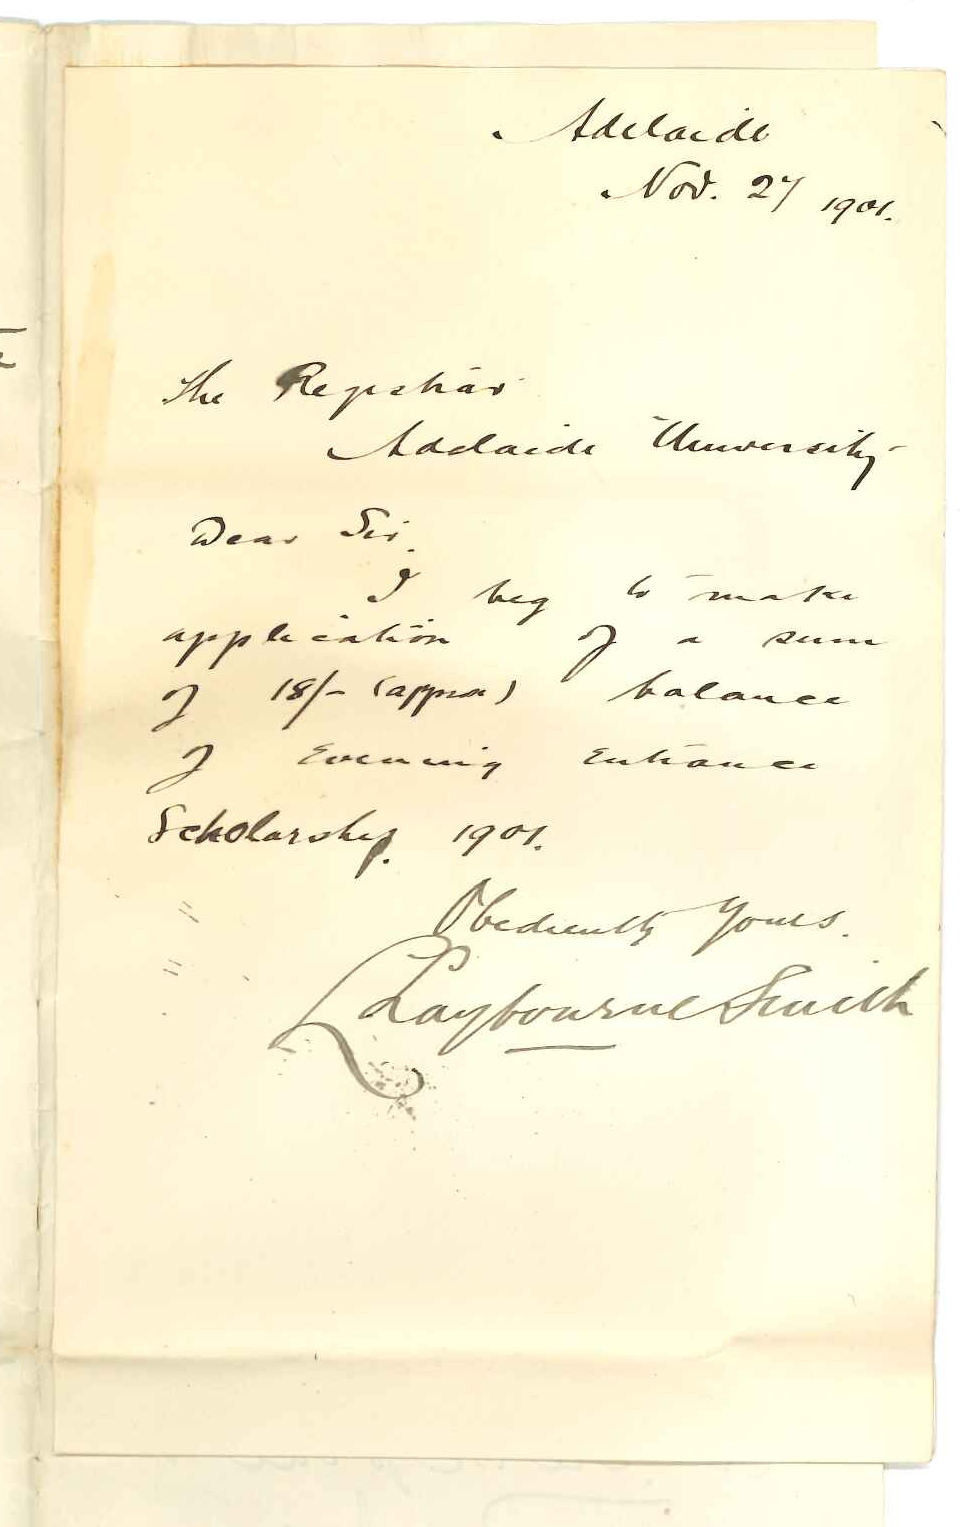 Adelaide
Nov. 27 1901.
The Registrar
Adelaide University
Dear Sir,
I beg to make
application of a sum
of 18/- (approx) balance
of Evening Entrance
Scholarship. 1901.
Obediently Yours.
Laybourne Smith